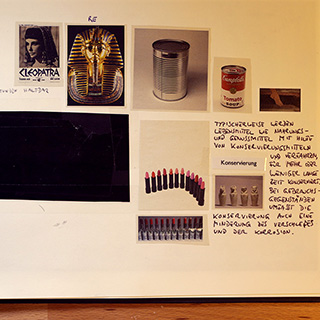 RE
CLEOPATRA
HALTBAR
Campbell's
Tomato
SOUP
TYPISCHERWEISE WERDEN
LEBENSMITTEL WIE NAHRUNGS-
UND GENUSSMITTEL MIT HILFE
VON KONSERVIERUNGSMITTELN
UND VERFAHREN
FÜR MEHR ODER
WENIGER LANGE
ZEIT KONSERVIERT.
BEI GEBRAUCHS-
GEGENSTÄNDEN
UMFASST DIE
KONSERVIERUNG AUCH EINE
MINDERUNG DES VERSCHLEIßES
UND DER KORROSION.
Konservierung